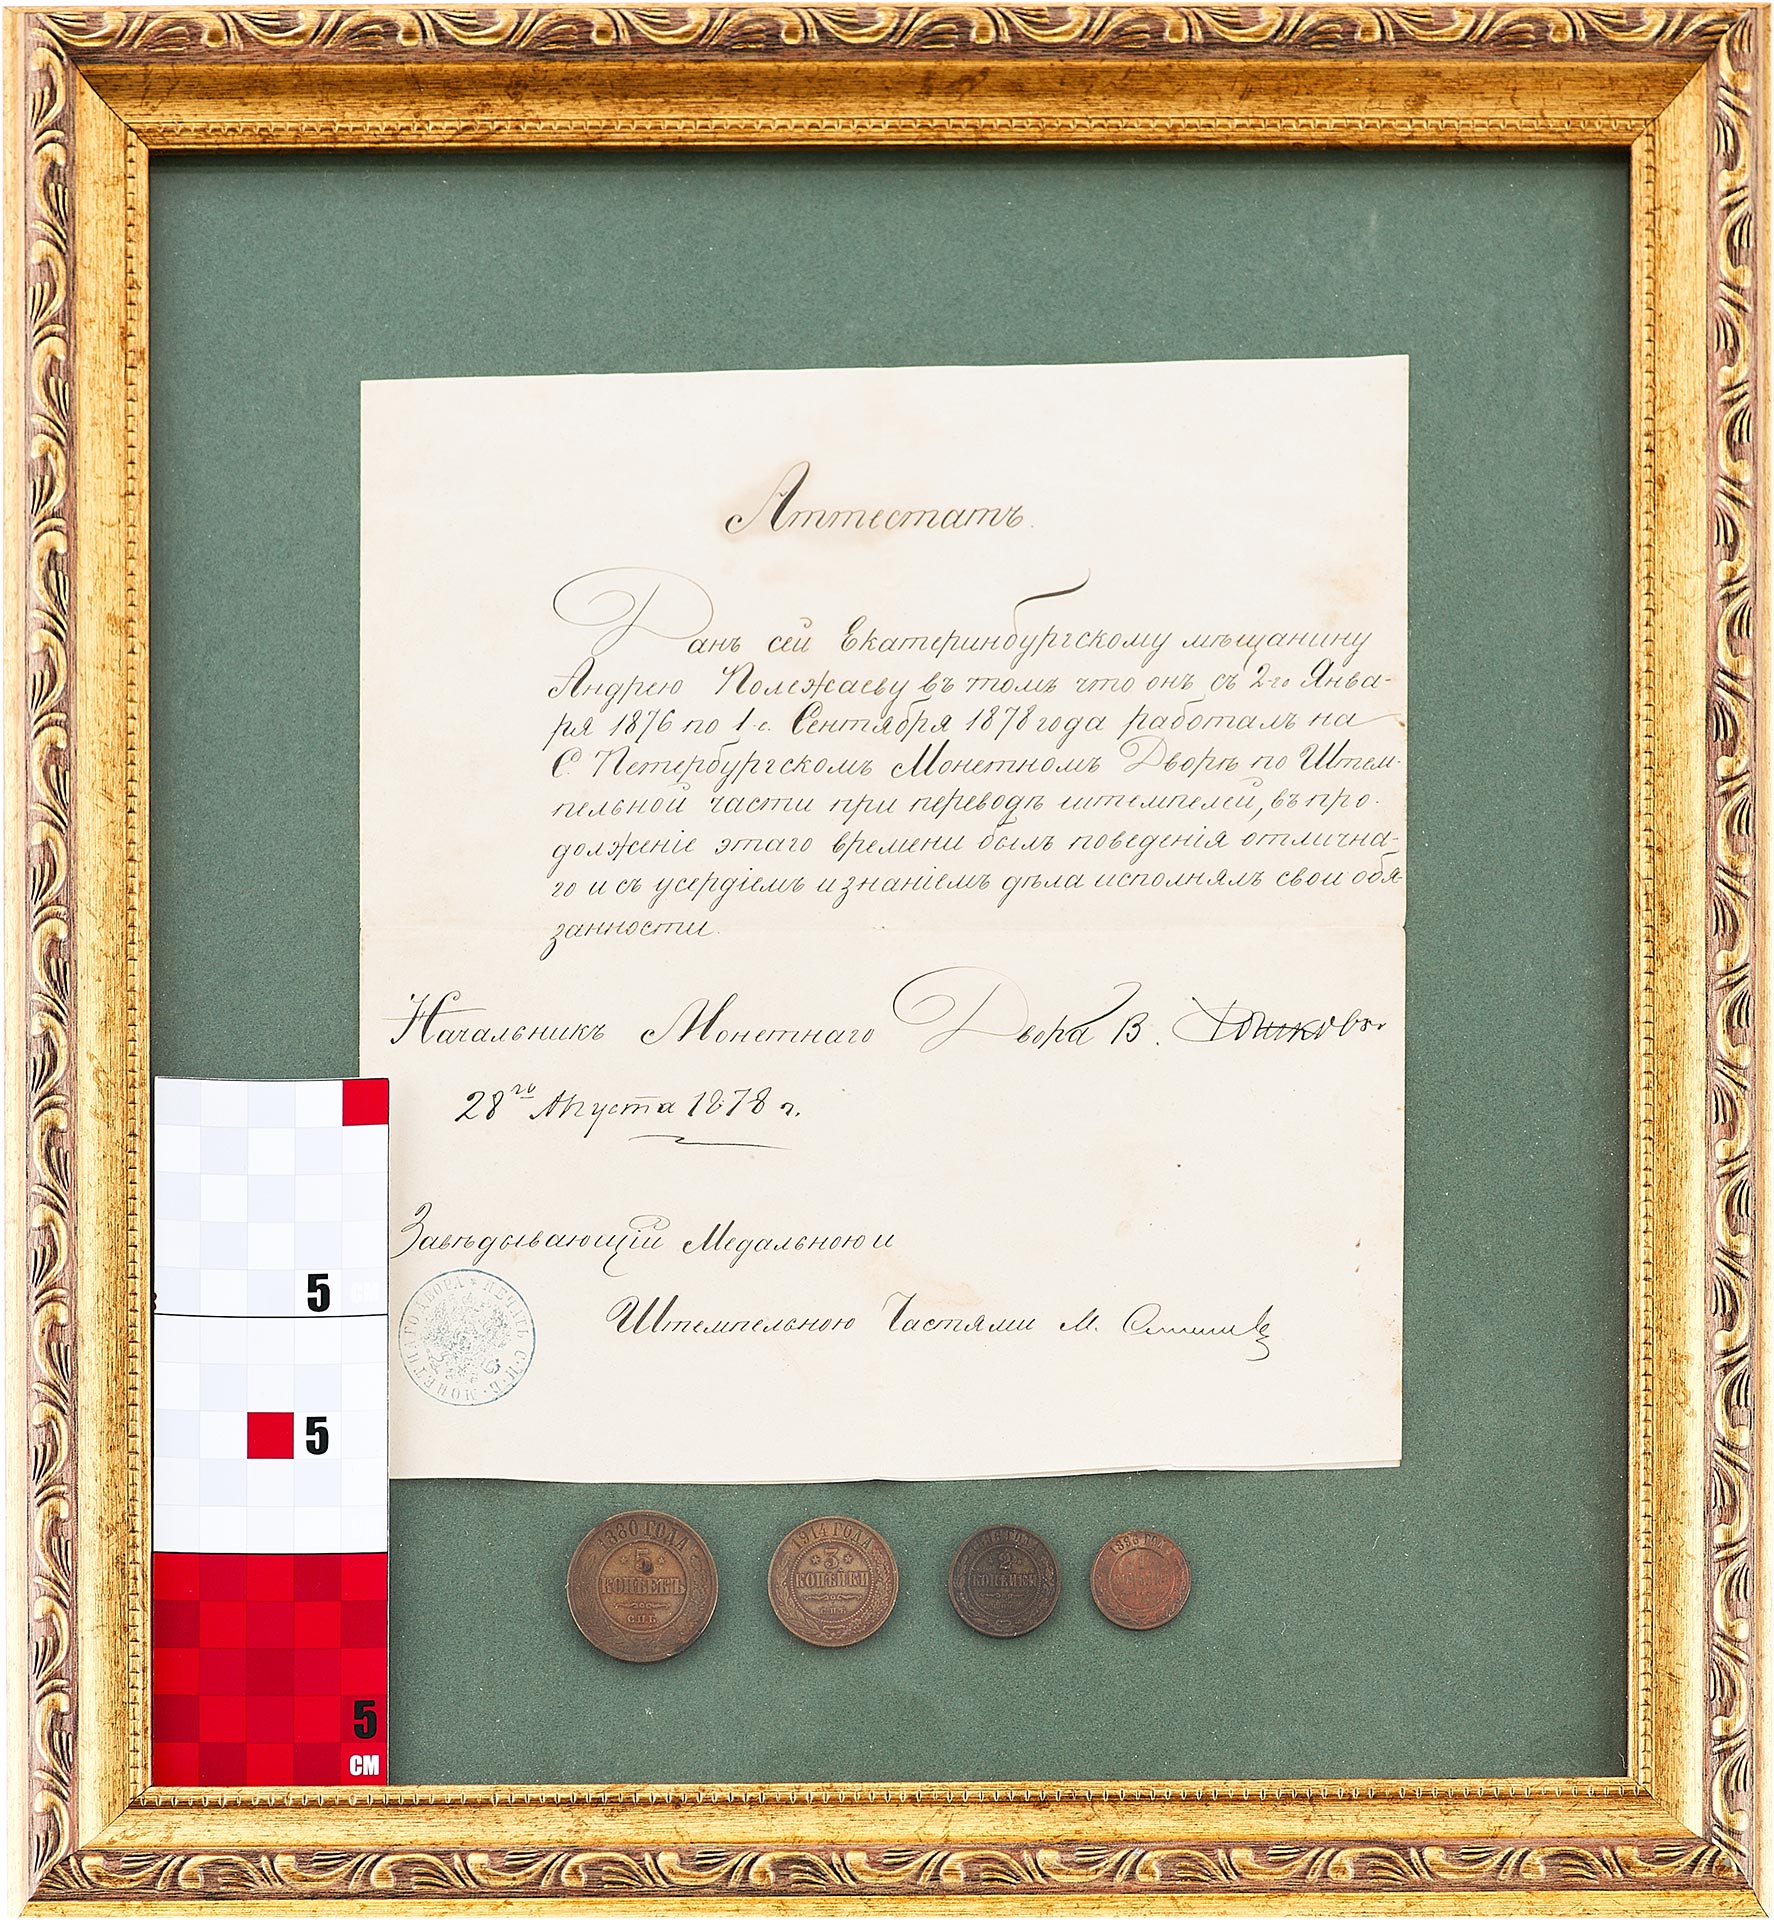 Аттестатъ.
Данъ сей Екатеринбургскому мѣщанину
Андрею Полежаеву въ томъ что онъ съ 2-го Янва-
ря 1876 по 1-е Сентября 1878 года работалъ на
С. Петербургскомъ Монетномъ Дворѣ по Штем-
пельной части при переводѣ штемпелей, въ про-
долженіе этаго времени былъ поведенія отлична-
го и съ усердіемъ и знаніемъ дѣла исполнялъ свои обя-
занности.
Начальникъ Монетнаго Двора В.
28го Августа 1878 г.
Завѣдывающій Медальною и
Штемпельною Частями М.
ПЕЧАТЬ С.П.Б. МОНЕТНАГО ДВОРА
5 СМ
5
5
СМ
1880 ГОДА
5
КОПѢЕКЪ
С.П.Б.
1914 ГОДА
3
КОПѢЙКИ
С.П.Б.
ГОДА
2
КОПѢЙКИ
ГОДА
1